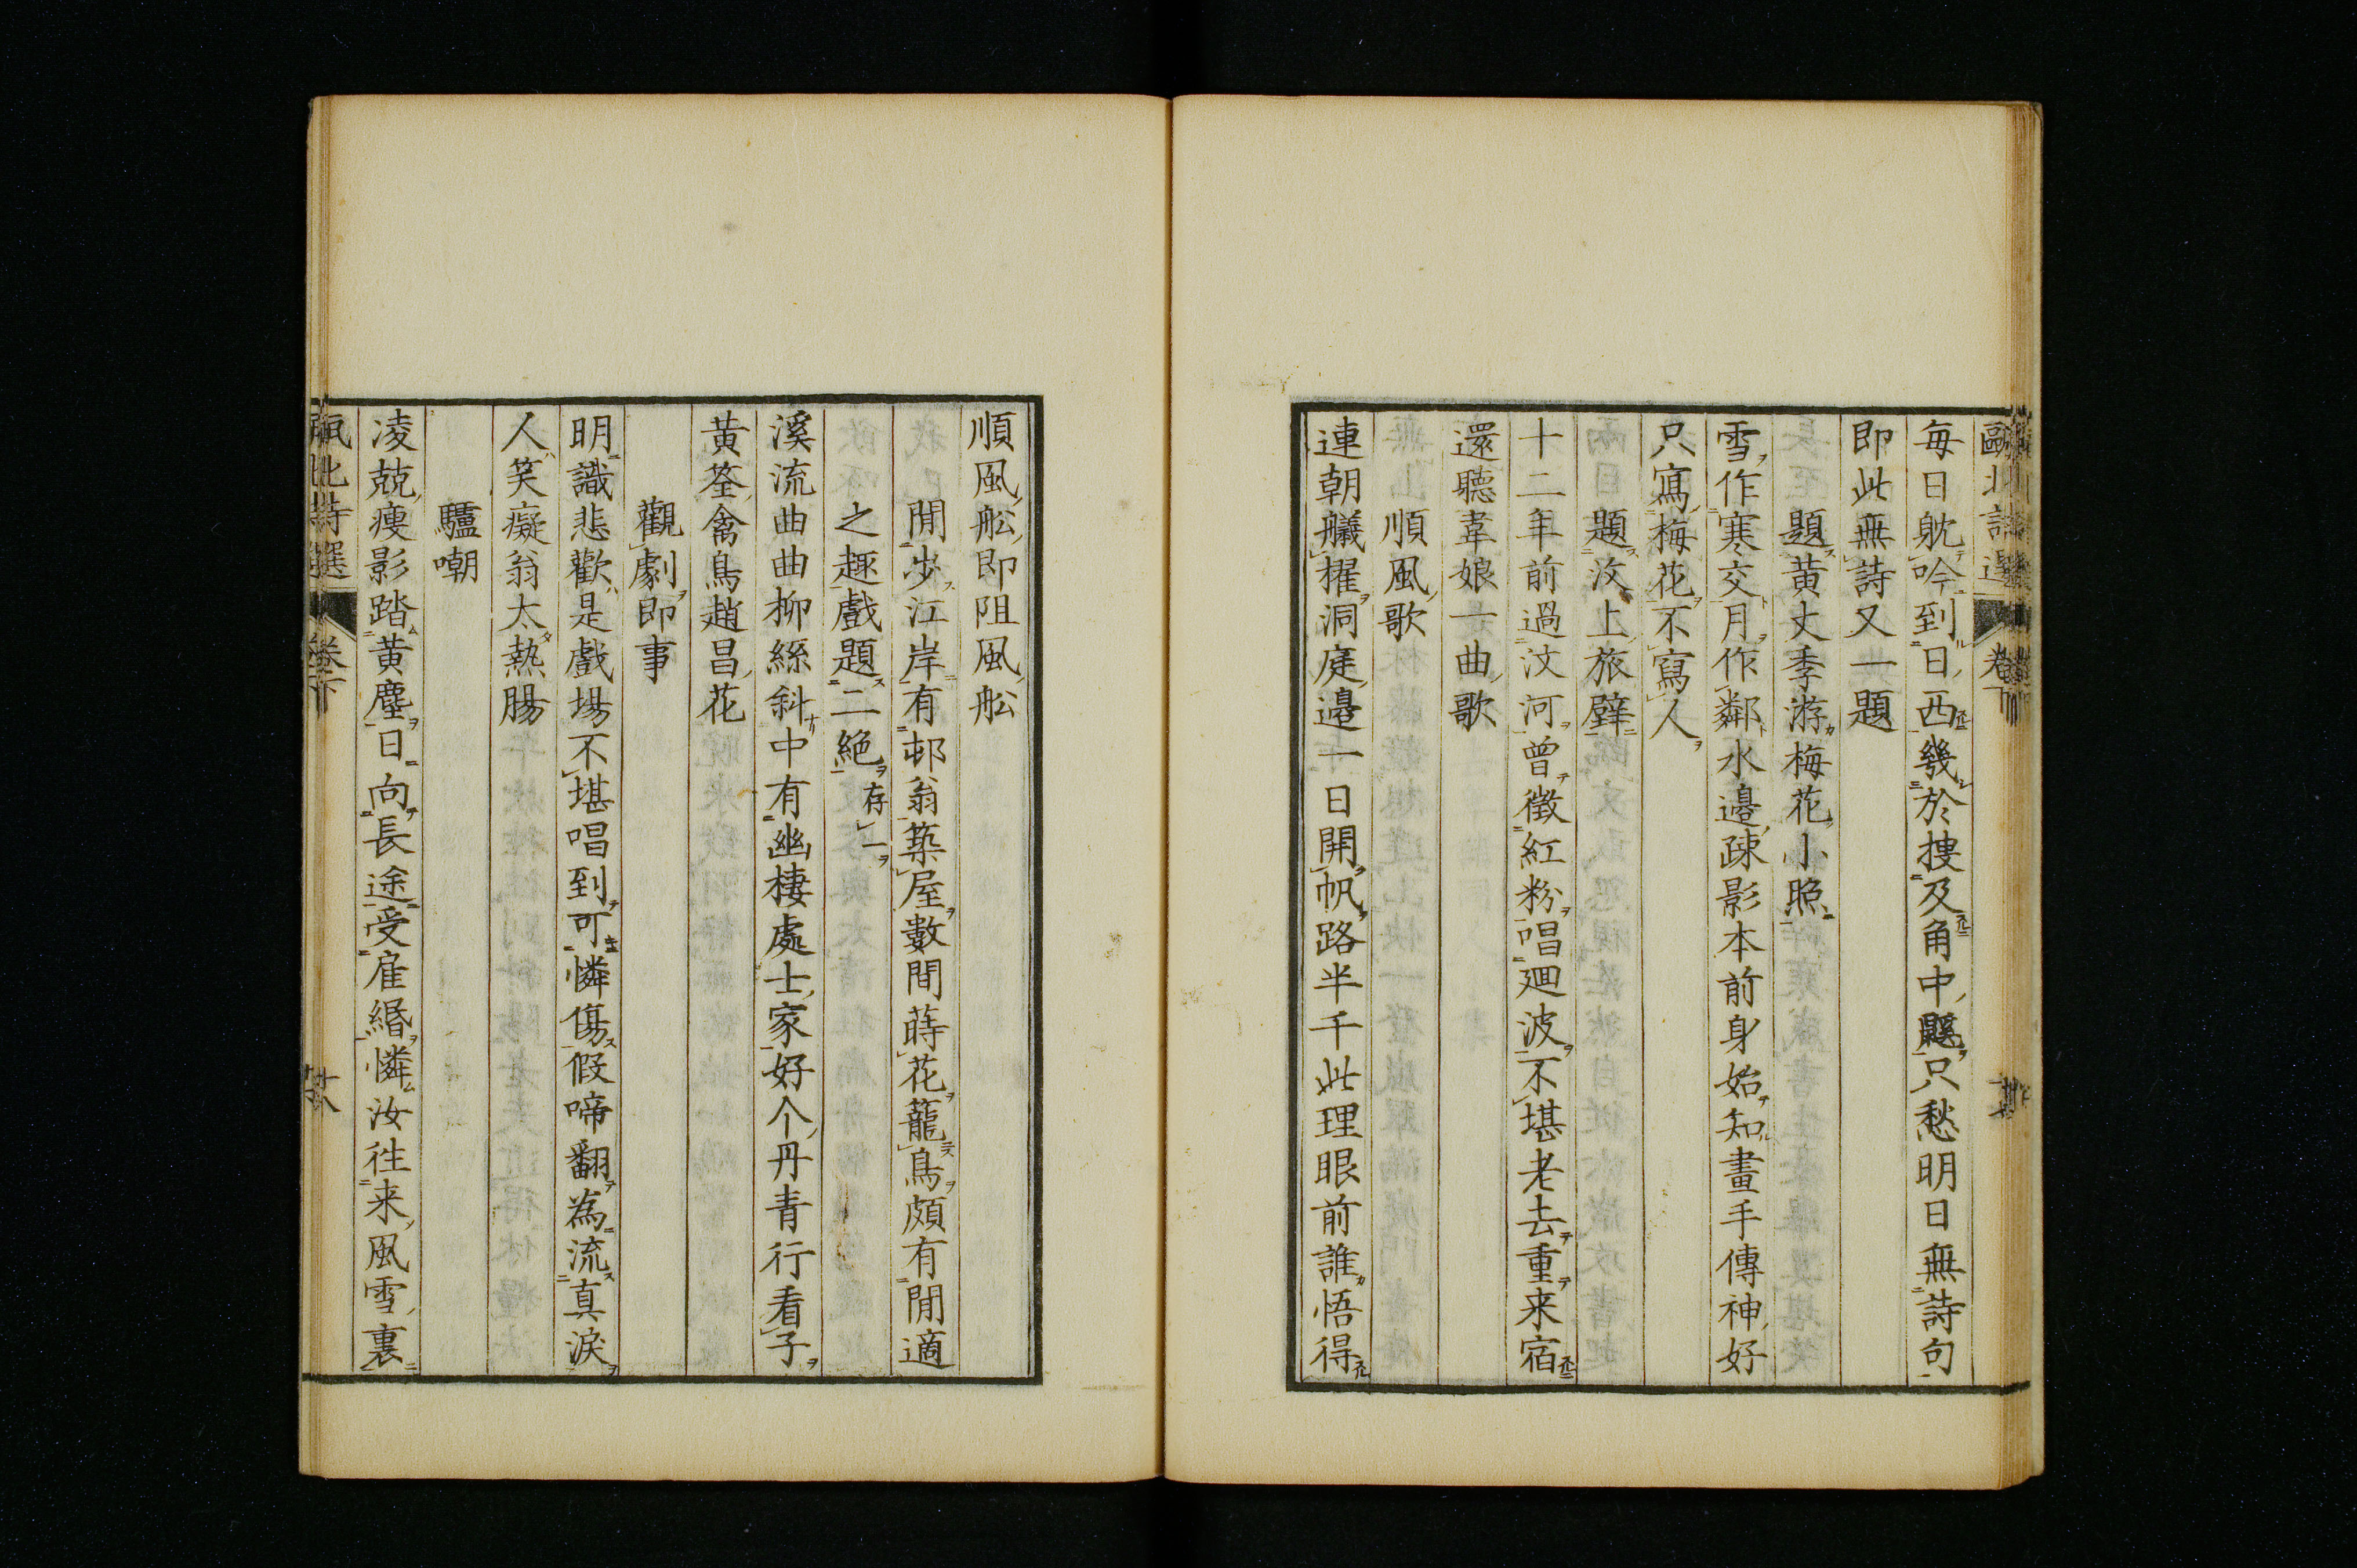 甌北詩選 卷下
每日躭吟到日西幾於搜及角中鼷只愁明日無詩句
即此無詩又一題
題黃丈季游梅花小照
雪作寒交月作鄰水邉疎影本前身始知畫手傳神好
只寫梅花不寫人
題汶上旅壁
十二年前過汶河曾徵紅粉唱廻波不堪老去重来宿
還聽韋娘一曲歌
順風歌
連朝艤櫂洞庭邉一日開帆路半千此理眼前誰悟得
順風舩即阻風舩
閒步江岸有邨翁築屋數間蒔花籠鳥頗有閒適
之趣戲題二絶存一
溪流曲曲柳絲斜中有幽棲處士家好个丹青行看子
黃筌禽鳥趙昌花
觀劇即事
明識悲歡是戲場不堪唱到可憐傷假啼翻為流真淚
人笑癡翁太熱腸
驢嘲
凌兢瘦影踏黃塵日向長途受雇緡憐汝往来風雪裏
甌北詩選 卷下 廿八